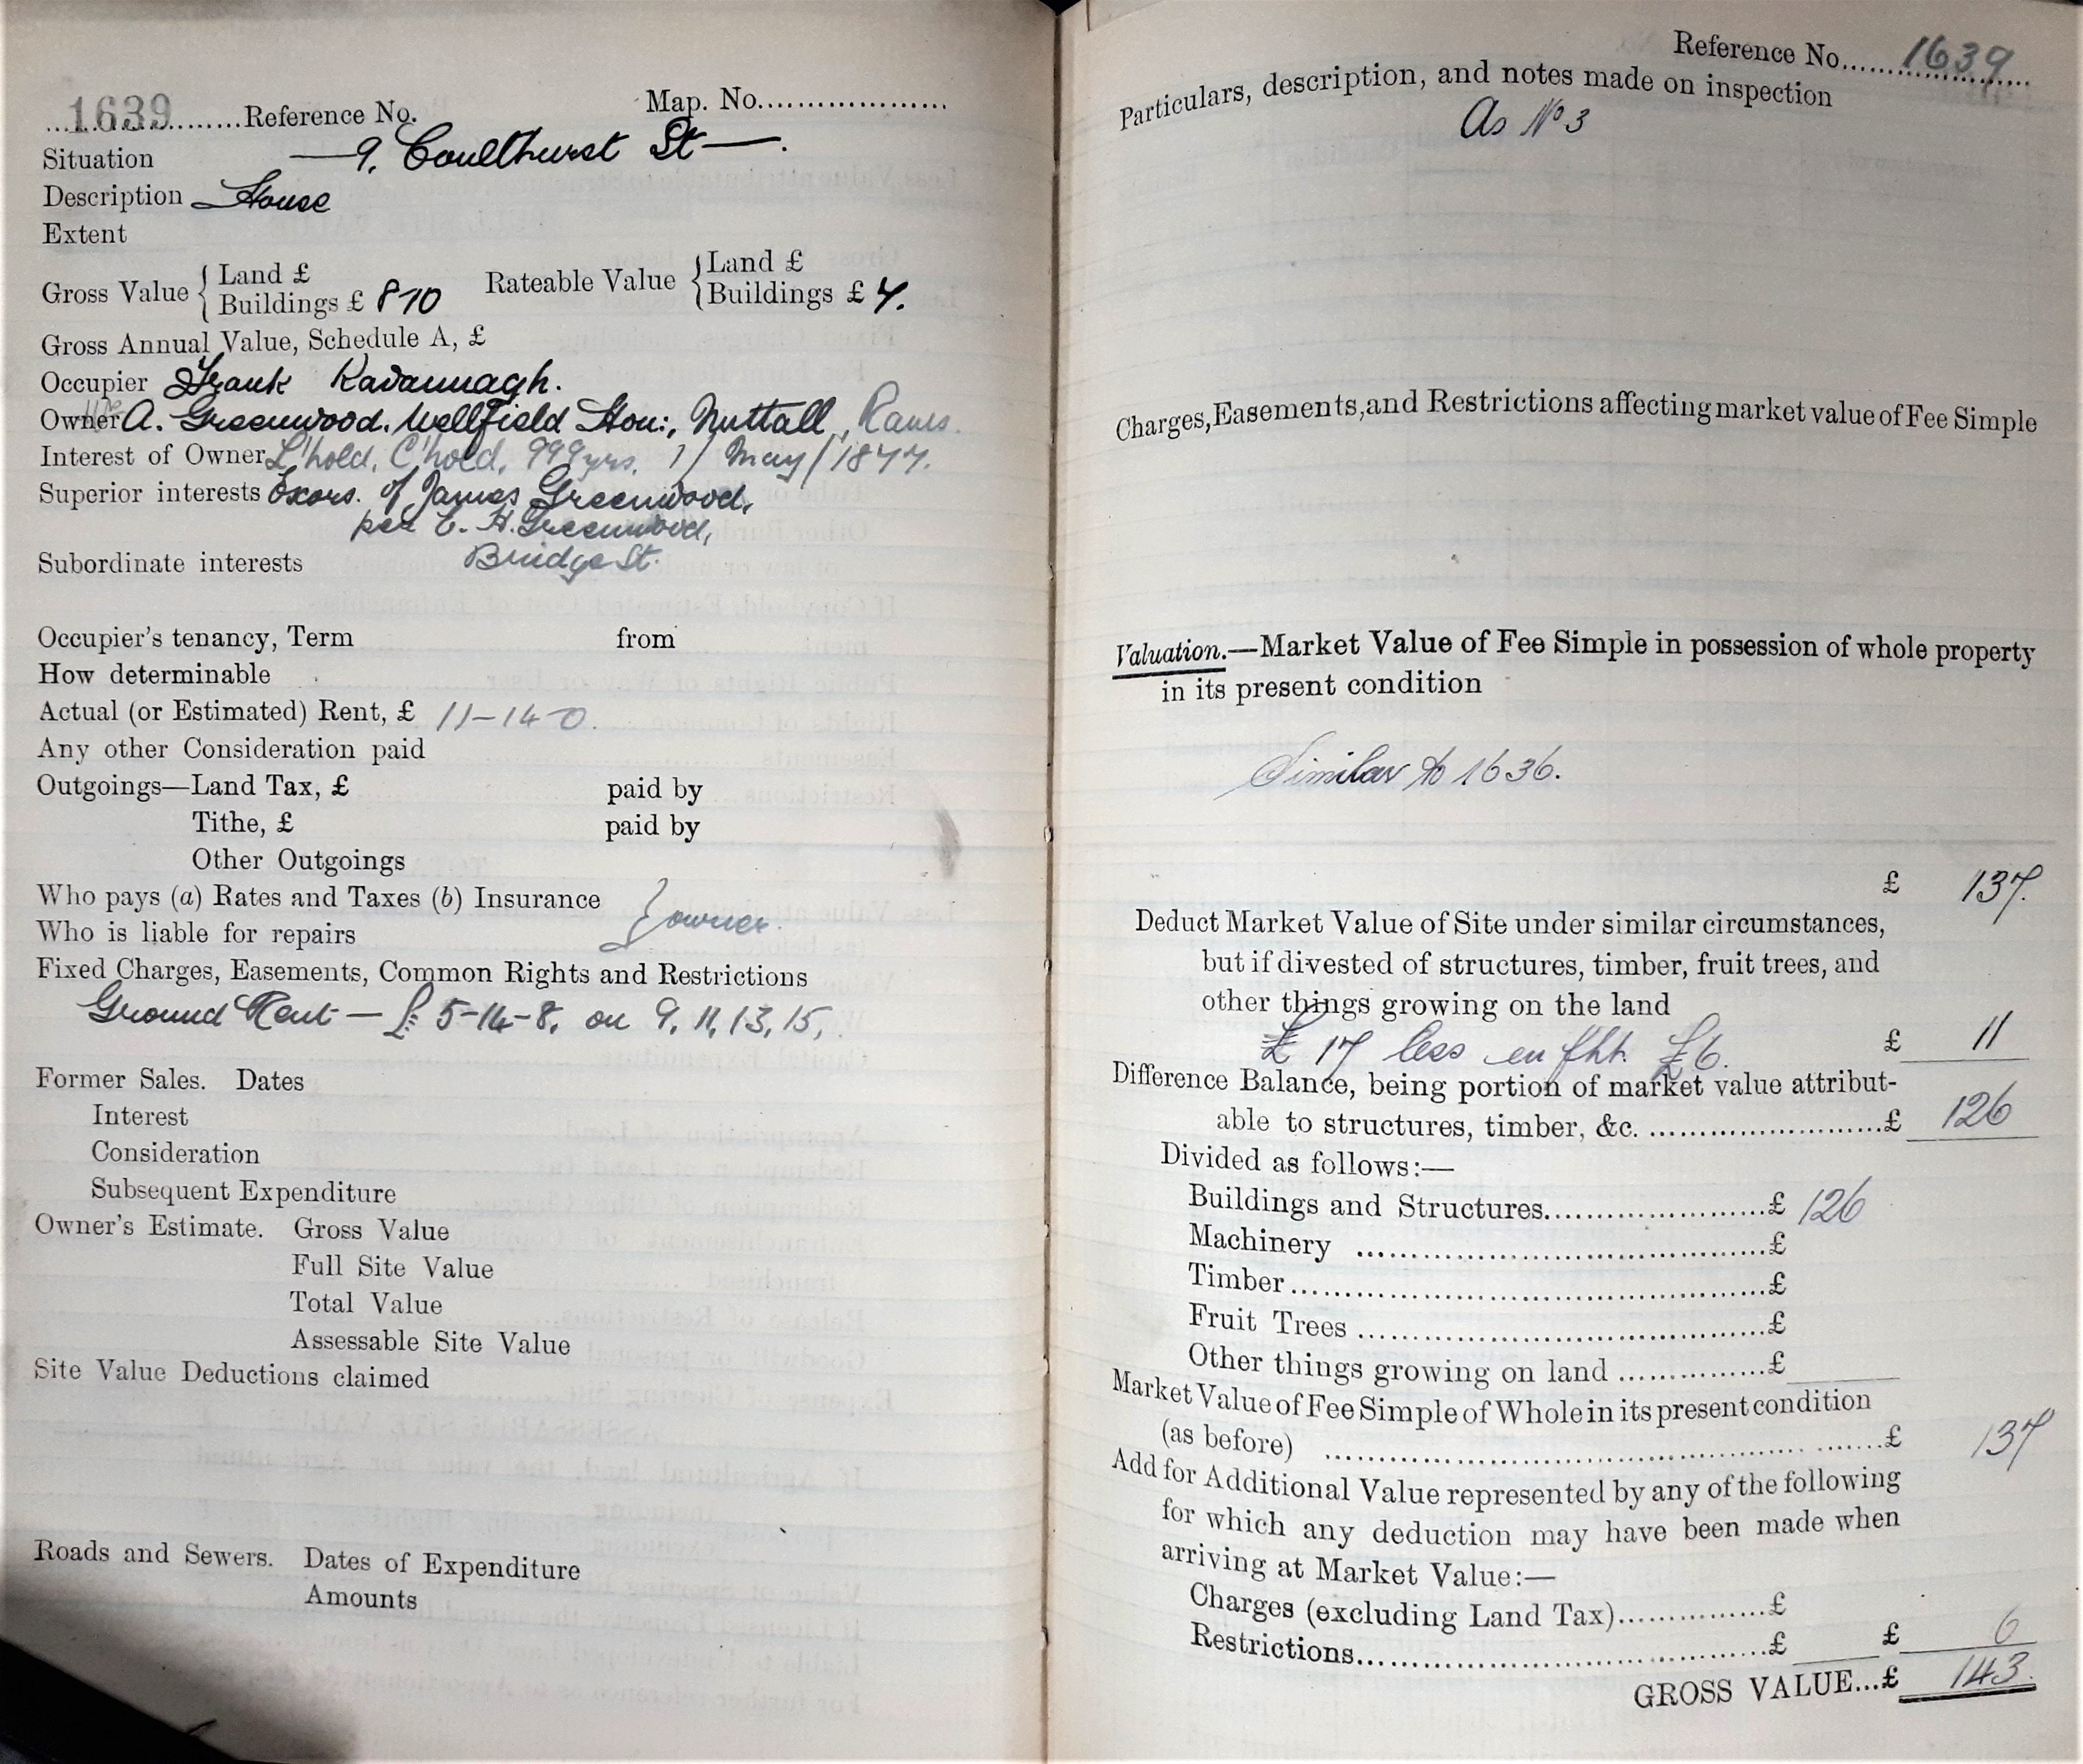 1639 Reference No. Map. No.
Situation — 9, Coulthurst St —.
Description House
Extent
Gross Value { Land £
Buildings £ 8 10
Rateable Value { Land £
Buildings £ 7.
Gross Annual Value, Schedule A, £
Occupier Frank Kavannagh.
Owner A. Greenwood. Wellfield Hou:, Nuttall, Rams.
Interest of Owner L'hold, C'hold, 999 yrs. 1/ May/1877.
Superior interests Exors. of James Greenwood,
per E. H. Greenwood,
Bridge St.
Subordinate interests
Occupier's tenancy, Term from
How determinable
Actual (or Estimated) Rent, £ 11-14-0.
Any other Consideration paid
Outgoings—Land Tax, £ paid by
Tithe, £ paid by
Other Outgoings
Who pays (a) Rates and Taxes (b) Insurance } owner.
Who is liable for repairs
Fixed Charges, Easements, Common Rights and Restrictions
Ground Rent — £ 5-14-8, on 9, 11, 13, 15,
Former Sales. Dates
Interest
Consideration
Subsequent Expenditure
Owner's Estimate. Gross Value
Full Site Value
Total Value
Assessable Site Value
Site Value Deductions claimed
Roads and Sewers. Dates of Expenditure
Amounts
Reference No. 1639
Particulars, description, and notes made on inspection
As No 3
Charges, Easements, and Restrictions affecting market value of Fee Simple
Valuation.—Market Value of Fee Simple in possession of whole property
in its present condition
Similar to 1636.
£ 137.
Deduct Market Value of Site under similar circumstances,
but if divested of structures, timber, fruit trees, and
other things growing on the land
£17 less enfht. £6. £ 11
Difference Balance, being portion of market value attribut-
able to structures, timber, &c. £ 126
Divided as follows:—
Buildings and Structures £ 126
Machinery £
Timber £
Fruit Trees £
Other things growing on land £
Market Value of Fee Simple of Whole in its present condition
(as before) £ 137
Add for Additional Value represented by any of the following
for which any deduction may have been made when
arriving at Market Value:—
Charges (excluding Land Tax) £
Restrictions £ £ 6
GROSS VALUE...£ 143.